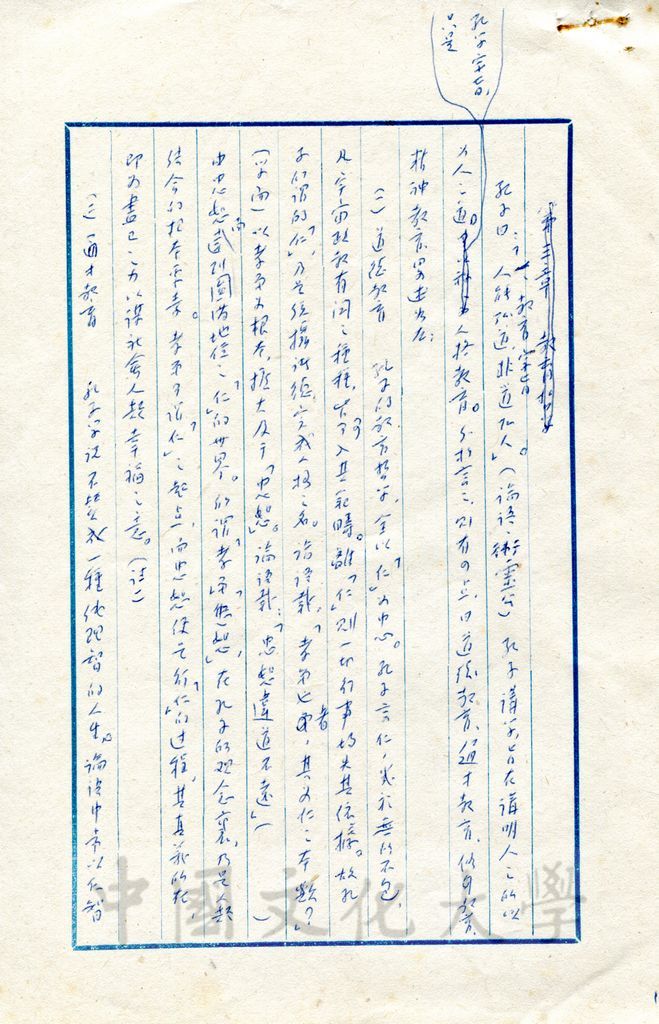 孔子宗旨,
只是
第三章 教育哲
一、教育宗旨
孔子曰:「人能弘道,非道弘人。」(論語·衛靈公)孔子講學,旨在講明人之所以
為人之道。為人格教育。分析言之,則有四點,曰道德教育、通才教育、修身教育、
精神教育,略述如左:
(一)道德教育 孔子的教育哲學,全以「仁」為中心。孔子言仁,幾於無所不包,
凡宇宙政教有關之種種,皆可入其範疇。離「仁」則一切行事均失其依據。故孔
子所謂的「仁」,乃是統攝諸德,完成人格之名。論語載,「孝弟也者,其為仁之本歟?」
(學而)以孝弟為根本,擴大及于「忠恕」。論語載:「忠恕違道不遠」( )
由忠恕而達到圓滿地位之「仁」的世界。所謂「孝弟」「忠恕」,在孔子的觀念裏,乃是人類
生命的根本要素。孝弟可謂「仁」之起點,而忠恕便是行「仁」的過程,其真義所在,
即為盡己之力以謀社會人類幸福之意。(註一)
(二)通才教育 孔子學說不贊成一種純理智的人生。論語中常以仁智
中國文化大學